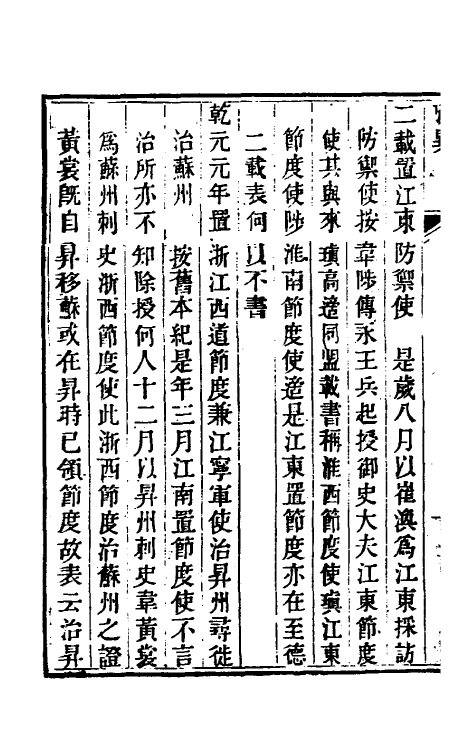 二載置江東防禦使　是歲八月以崔渙為江東採訪
防禦使按韋陟傳永王兵起授御史大夫江東節度
使其與來瑱高適同盟載書稱淮西節度使瑱江東
節度使陟淮南節度使適是江東置節度亦在至德
二載表何以不書
乾元元年置浙江西道節度兼江寧軍使治昇州尋徙
治蘇州　按舊本紀是年三月江南置節度使不言
治所亦不知除授何人十二月以昇州刺史韋黃裳
為蘇州刺史浙西節度使此浙西節度治蘇州之證
黃裳旣自昇移蘇或在昇時已領節度故表云治昇